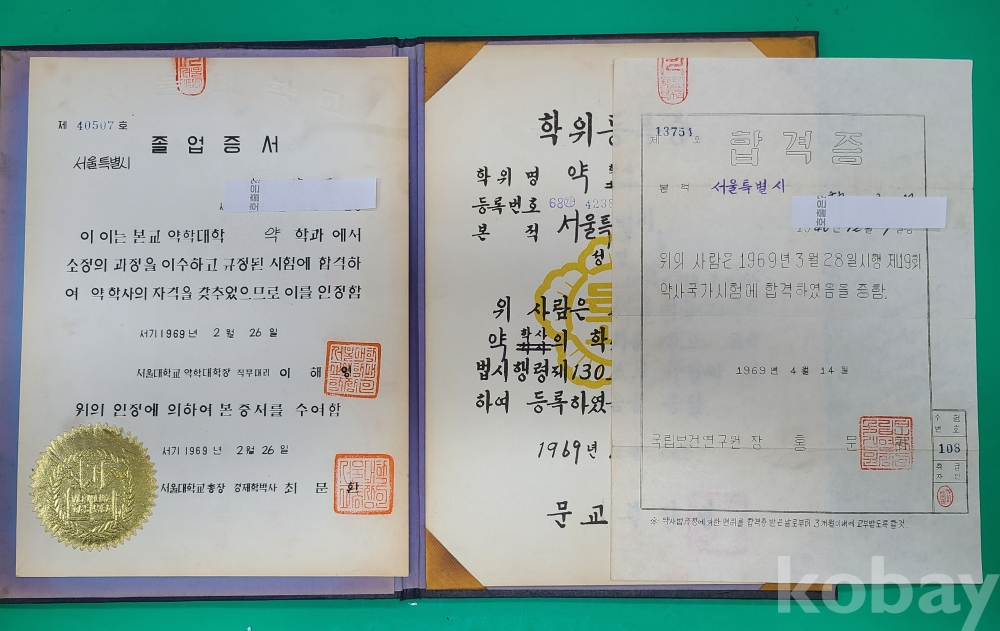 제 40507 호
졸업증서
서울특별시
이 이는 본교 약학대학 약 학과에서
소정의 과정을 이수하고 규정된 시험에 합격하
여 약학사의 자격을 갖추었으므로 이를 인정함
서기1969년 2월 26일
서울대학교 약학대학장 직무대리 이 해 영
위의 인정에 의하여 본 증서를 수여함
서기1969년 2월 26일
서울대학교총장 경제학박사 최 문 환
학위
학위명 약
등록번호 68 4238
본 적 서울특
성
위 사람은
약 학사의 학
법시행령제130
하여 등록하였
1969년
문교
제 13751 호
합격증
본적 서울특별시
위의 사람은 1969년 3월 28일시행 제19회
약사국가시험에 합격하였음을 증함
1969년 4월 14일
국립보건연구원장 홍 문
수험
번호
108
취급
자인
호출은
호출은
kobay